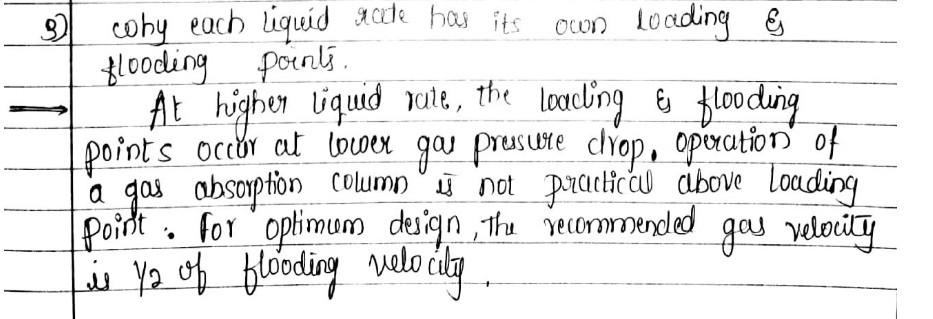 3) cohy each liquid rate has its own loading &
flooding points.
→ At higher liquid rate, the loading & flooding
points occur at lower gas pressure drop. operation of
a gas absorption column is not practical above loading
point. for optimum design, The recommended gas velocity
is 1/2 of flooding velocity.